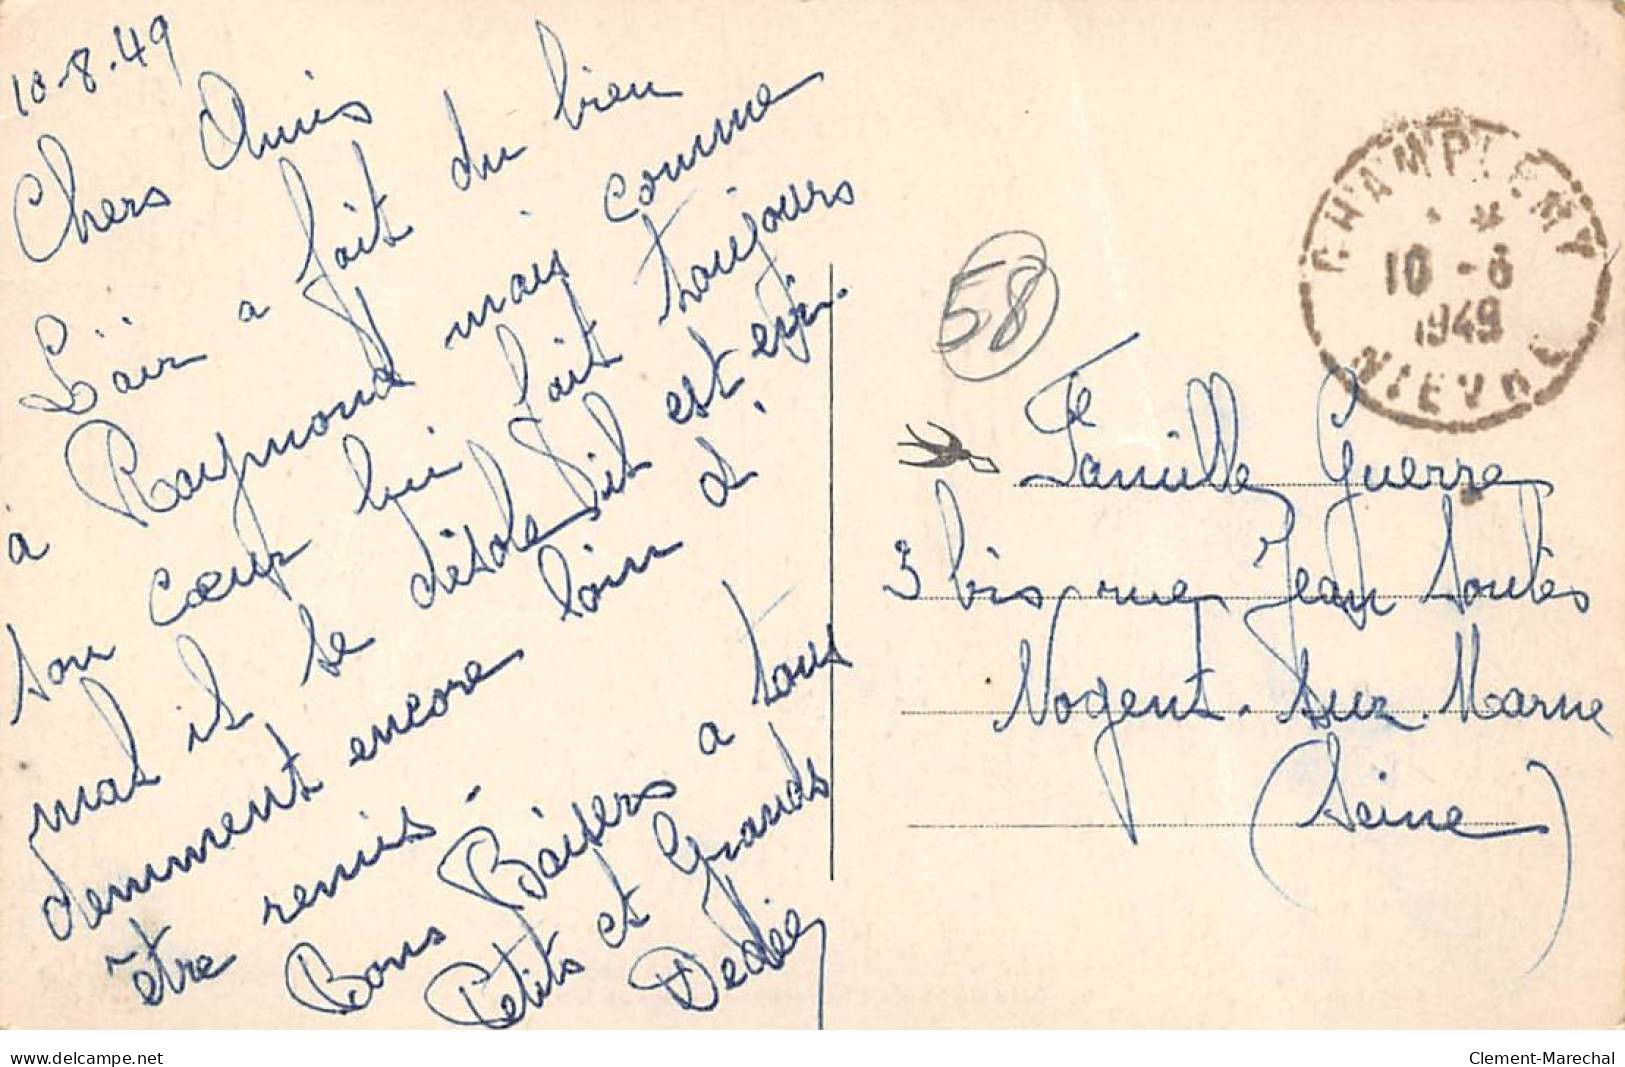 10-8-49
Chers Amis
L'air a fait du bien
à Raymond mais comme
son cœur lui fait toujours
mal il se désole Dit est
demment encore loin d'
être remis.
Bons Baisers a tous
Petits et Grands
Dédée
CHAMPLEMY
10 -8
1949
NIEVRE
58
Famille Guerre
3 bis rue Jean Soulès
Nogent-sur-Marne
(Seine)
www.delcampe.net
Clement-Marechal